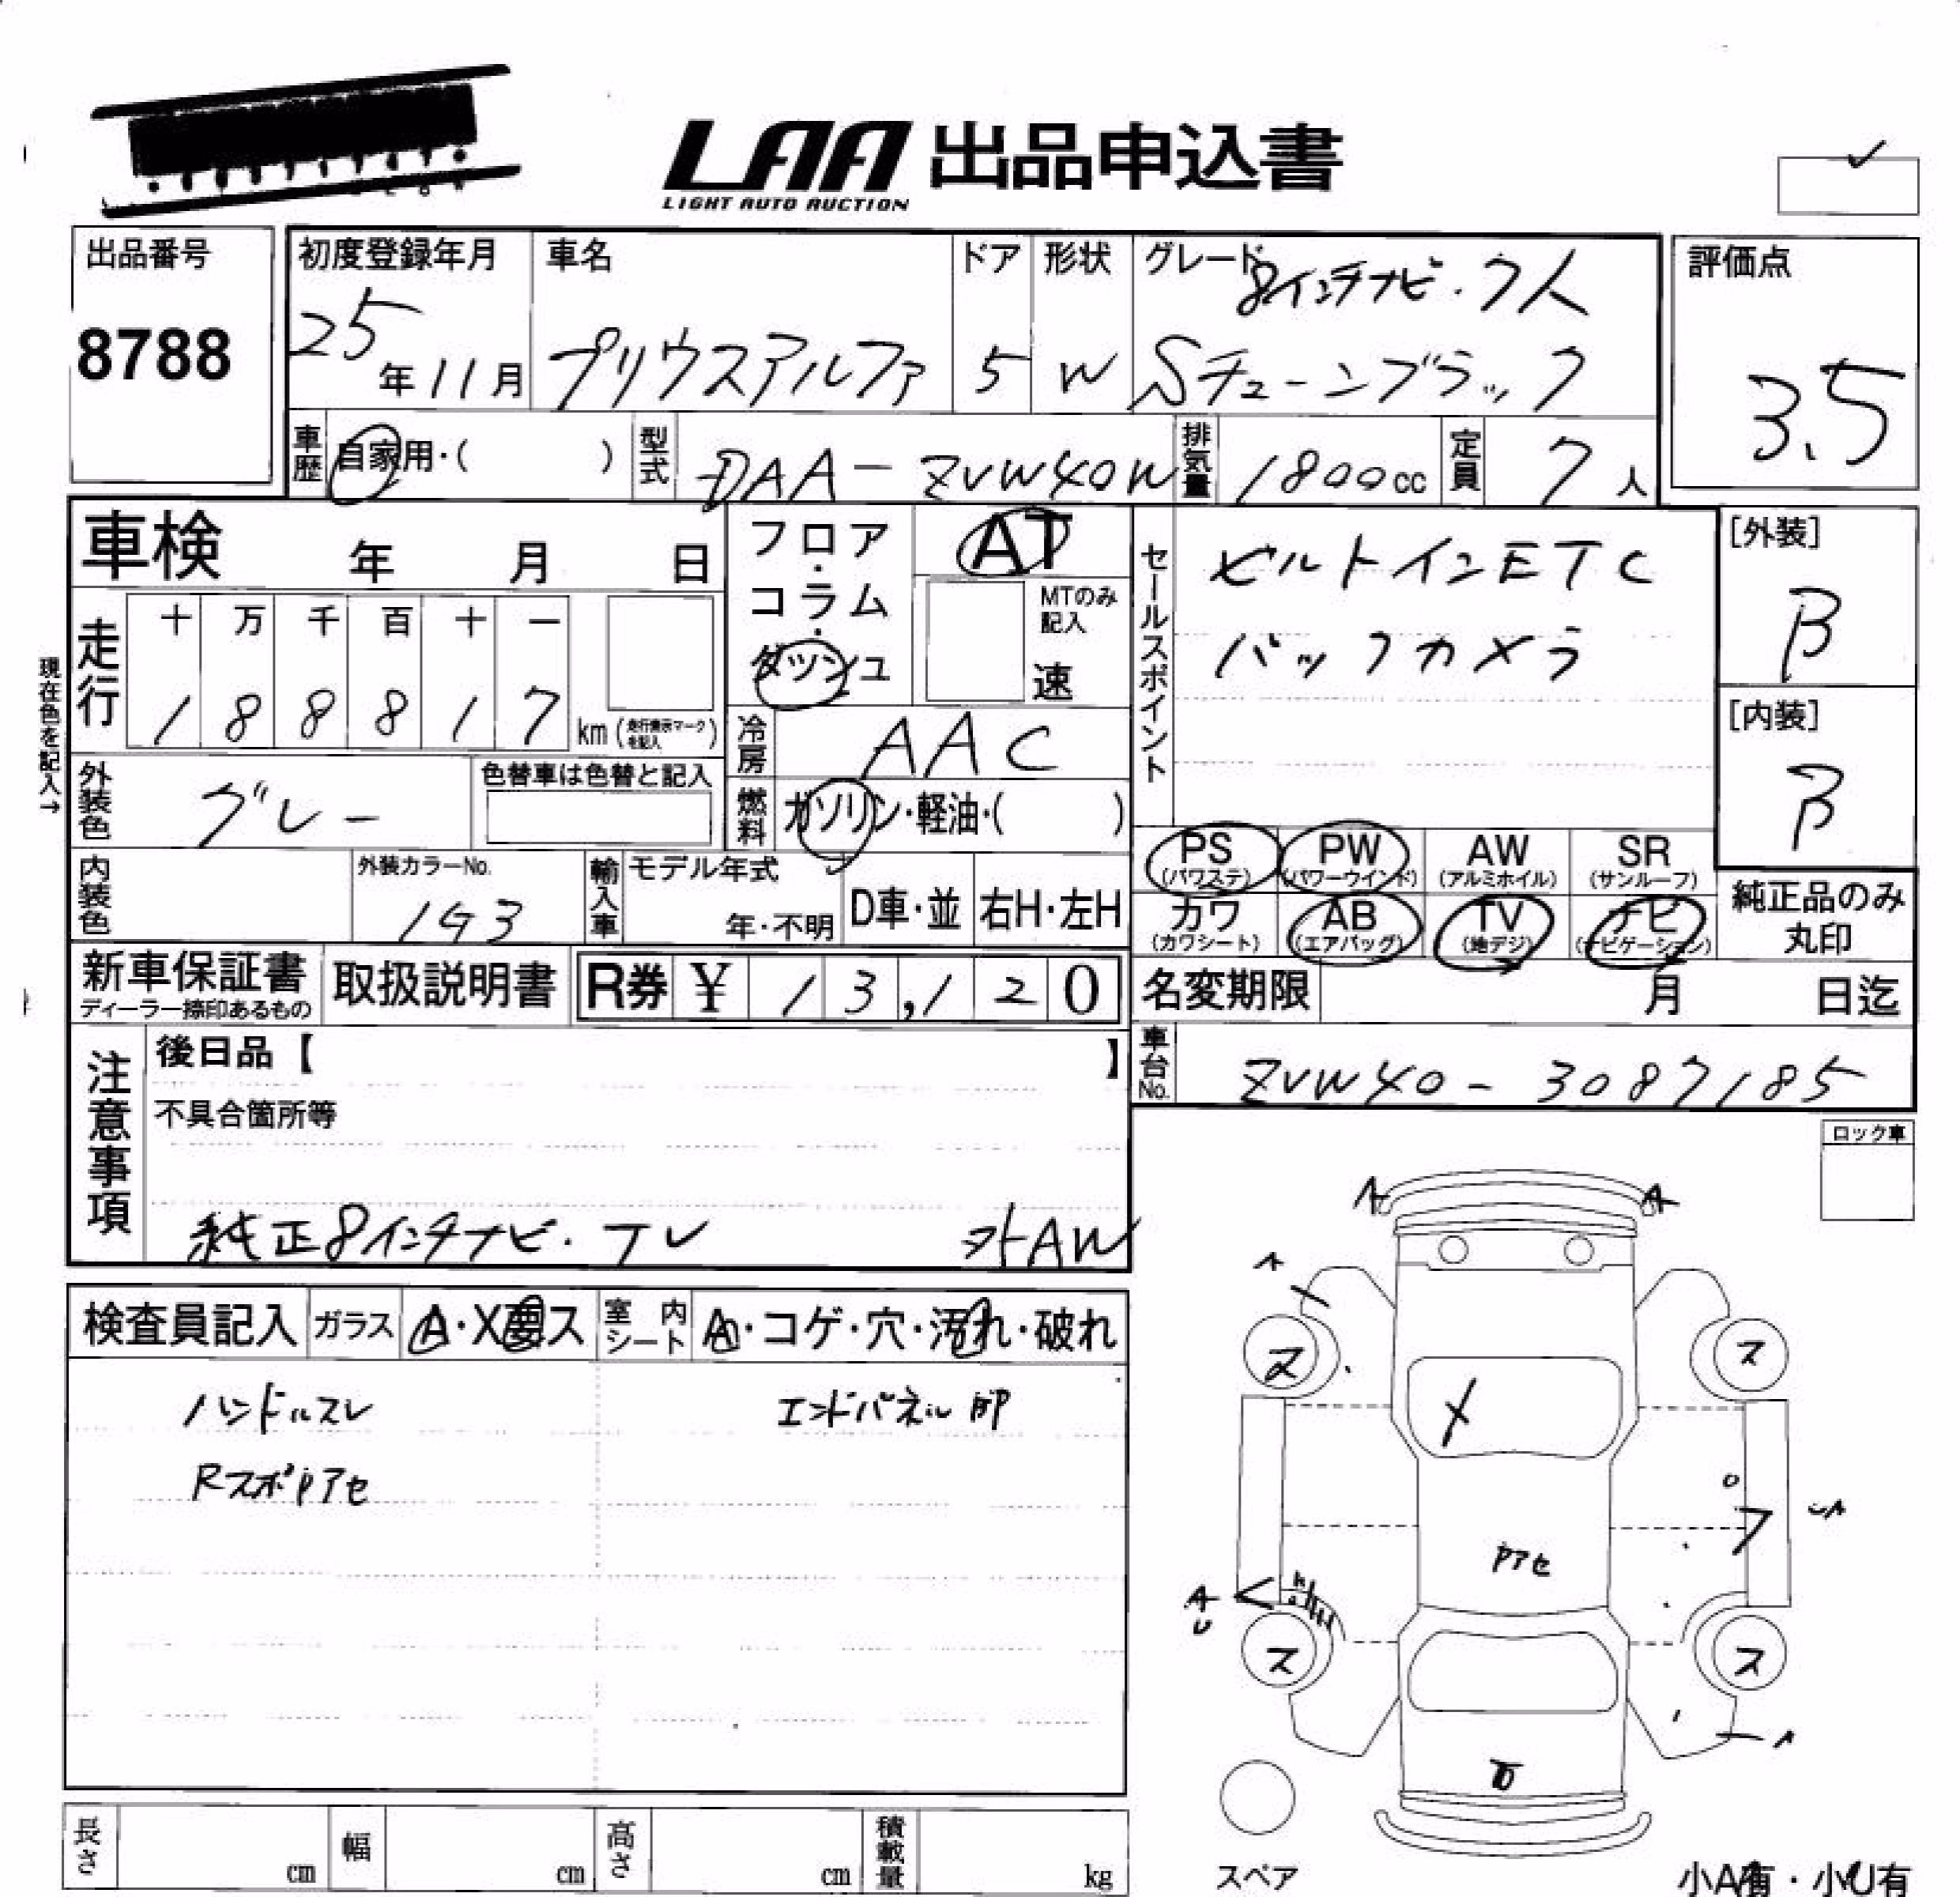 LAA 出品申込書
LIGHT AUTO AUCTION
出品番号
8788
初度登録年月
25年11月
車名
プリウスアルファ
ドア
5
形状
W
グレード
8インチナビ・7人
Sチューンブラック
評価点
3.5
車歴
自家用・( )
型式
DAA-ZVW40W
排気量
1800cc
定員
7人
車検 年 月 日
フロア・コラム・ダッシュ
AT
MTのみ記入
速
セールスポイント
ビルトインETC
バックカメラ
[外装]
B
[内装]
B
現在色を記入→
走行
十 万 千 百 十 一
1 8 8 8 1 7 km (走行表示マークを記入)
冷房
AAC
外装色
グレー
色替車は色替と記入
燃料
ガソリン・軽油・( )
内装色
外装カラーNo.
1G3
輸入車
モデル年式
年・不明
D車・並
右H・左H
PS (パワステ)
PW (パワーウインド)
AW (アルミホイル)
SR (サンルーフ)
カワ (カワシート)
AB (エアバッグ)
TV (地デジ)
ナビ (ナビゲーション)
純正品のみ丸印
新車保証書
ディーラー捺印あるもの
取扱説明書
R券 ¥ 13,120
名変期限 月 日迄
車台No.
ZVW40-3087185
注意事項
後日品【 】
不具合箇所等
純正8インチナビ・TV 社外AW
ロック車
検査員記入
ガラス
A・X要ス
室内シート
A・コゲ・穴・汚れ・破れ
ハンドルスレ
エンドパネル凹
RスポPアセ
A A
A
ス ス
X
UA
Pアセ
A
U
ス ス
A
スペア
小A有・小U有
長さ cm
幅 cm
高さ cm
積載量 kg